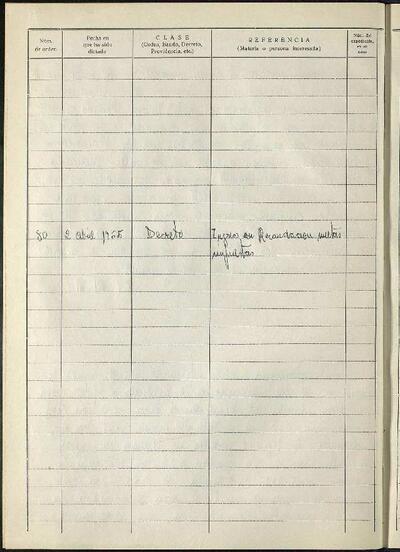 Núm.
de orden
Fecha en
que ha sido
dictado
CLASE
(Orden, Bando, Decreto,
Providencia, etc.)
REFERENCIA
(Materia o persona interesada)
Núm. del
expediente,
en su
caso
80 2 abril Decreto Ingreso en Recaudacion multas
impuestas